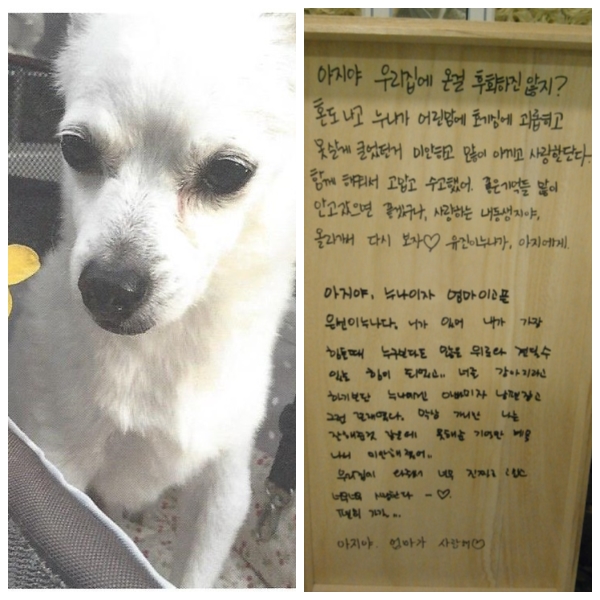 아지야 우리집에 온걸 후회하진 않지?
혼도 나고 누나가 어린맘에 호기심에 괴롭히고
못살게 굴었던거 미안하고 많이 아끼고 사랑한단다.
함께 해줘서 고맙고 수고했어. 좋은기억들 많이
안고갔으면 좋겠구나, 사랑하는 내동생지야,
올라가서 다시 보자♡ 유진이누나가, 아지에게.
아지야, 누나이자 엄마이고픈
누나다, 너가 있어 내가 가장
힘들때 누구보다도 많은 위로와 견딜수
있는 힘이 되었고.. 너를 강아지라고
하기보단 누나에겐
그런 존재였다. 막상 가니 나는
못해준 기억만
나서 미안해 했어..
우리집에 와줘서 너무
너무너무 사랑한다 ~ ♡.
아지야. 엄마가 사랑해♡